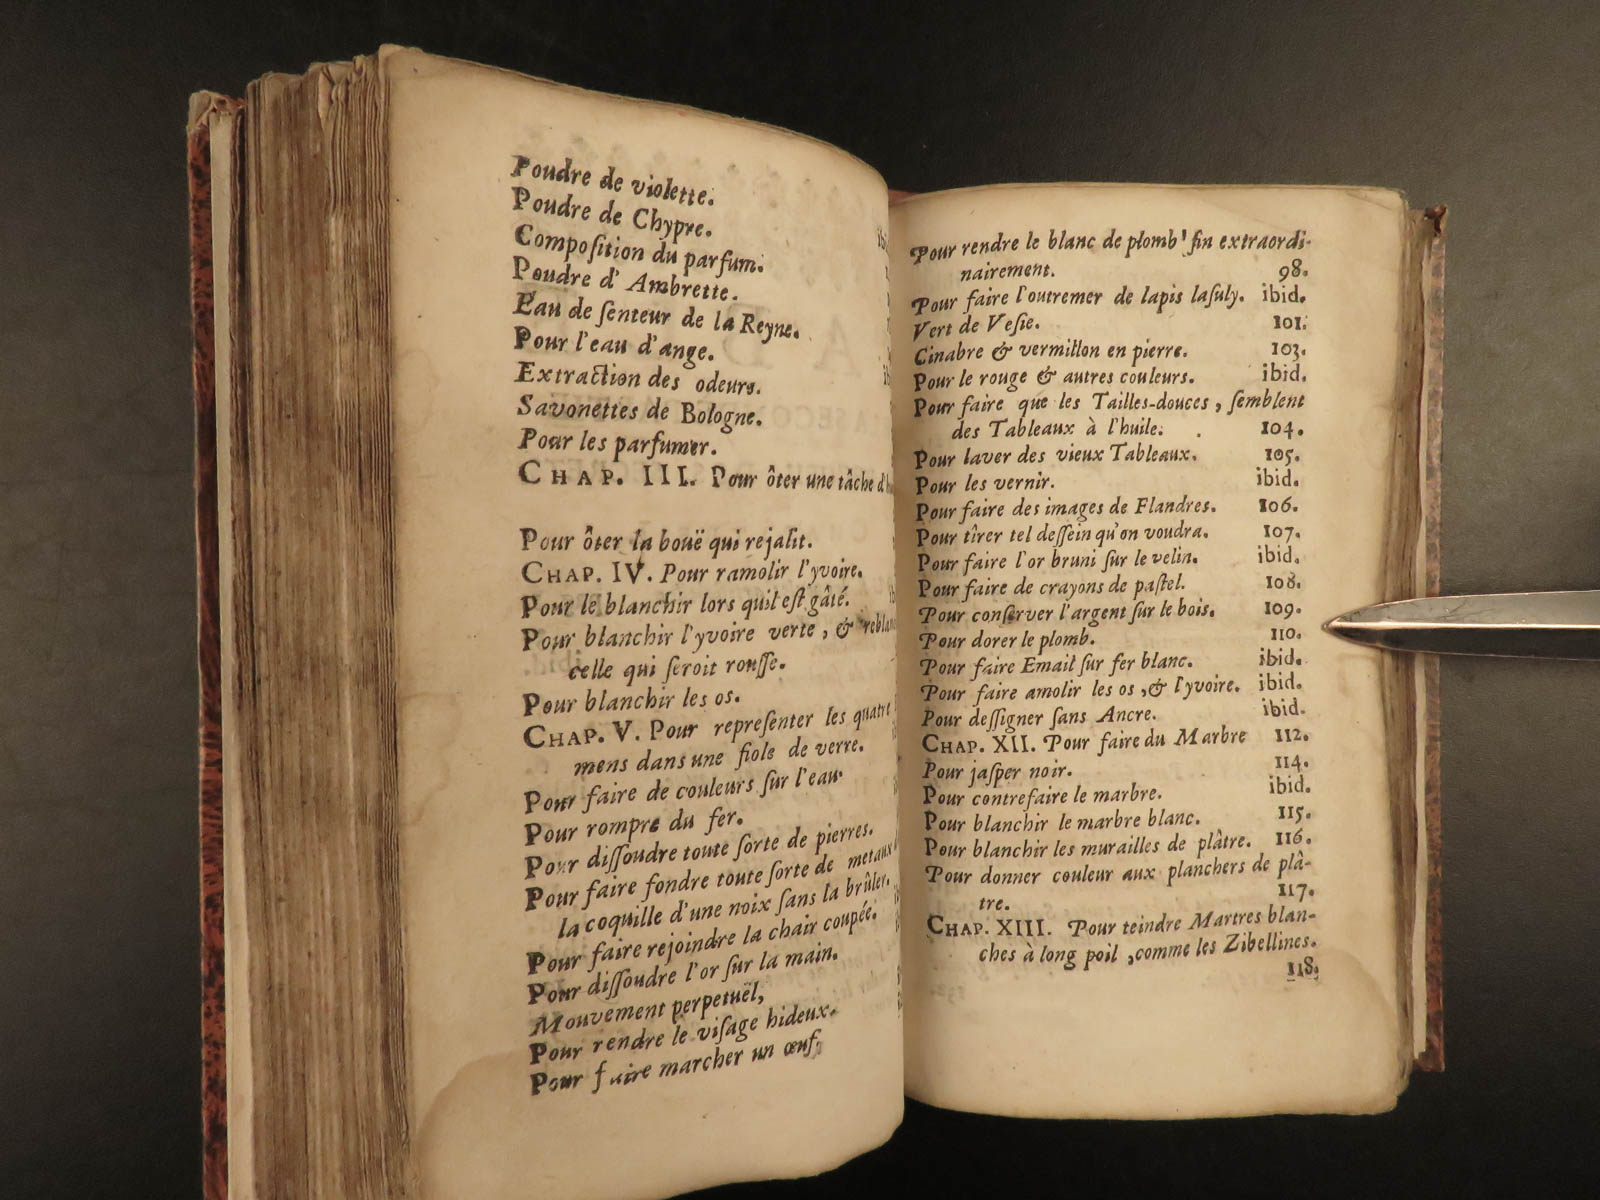 Poudre de violette.
Poudre de Chypre.
Compoſition du parfum.
Poudre d' Ambrette.
Eau de ſenteur de la Reyne.
Pour l'eau d'ange.
Extraction des odeurs.
Savonettes de Bologne.
Pour les parfumer.
CHAP. III. Pour ôter une tâche
Pour ôter la bouë qui rejalit.
CHAP. IV. Pour ramolir l'yvoire.
Pour le blanchir lors qu'il eſt gâté.
Pour blanchir l'yvoire verte, &
celle qui ſeroit rouſſe.
Pour blanchir les os.
CHAP. V. Pour repreſenter les quatre
mens dans une fiole de verre.
Pour faire de couleurs ſur l'eau.
Pour rompre du fer.
Pour diſſoudre toute ſorte de pierres.
Pour faire fondre toute ſorte de metaux
la coquille d'une noix ſans la brûler.
Pour faire rejoindre la chair coupée.
Pour diſſoudre l'or ſur la main.
Mouvement perpetuël,
Pour rendre le viſage hideux.
Pour faire marcher un œuf.
Pour rendre le blanc de plomb fin extraordi-
nairement. 98.
Pour faire l'outremer de lapis laſuly. ibid.
Vert de Veſie. 101.
Cinabre & vermillon en pierre. 103.
Pour le rouge & autres couleurs. ibid.
Pour faire que les Tailles-douces, ſemblent
des Tableaux à l'huile. 104.
Pour laver des vieux Tableaux. 105.
Pour les vernir. ibid.
Pour faire des images de Flandres. 106.
Pour tîrer tel deſſein qu'on voudra. 107.
Pour faire l'or bruni ſur le velin. ibid.
Pour faire de crayons de paſtel. 108.
Pour conſerver l'argent ſur le bois. 109.
Pour dorer le plomb. 110.
Pour faire Email ſur fer blanc. ibid.
Pour faire amolir les os, & l'yvoire. ibid.
Pour deſſigner ſans Ancre. ibid.
CHAP. XII. Pour faire du Marbre 112.
Pour jaſper noir. 114.
Pour contrefaire le marbre. ibid.
Pour blanchir le marbre blanc. 115.
Pour blanchir les murailles de plâtre. 116.
Pour donner couleur aux planchers de plâ-
tre. 117.
CHAP. XIII. Pour teindre Martres blan-
ches à long poil, comme les Zibellines.
118.